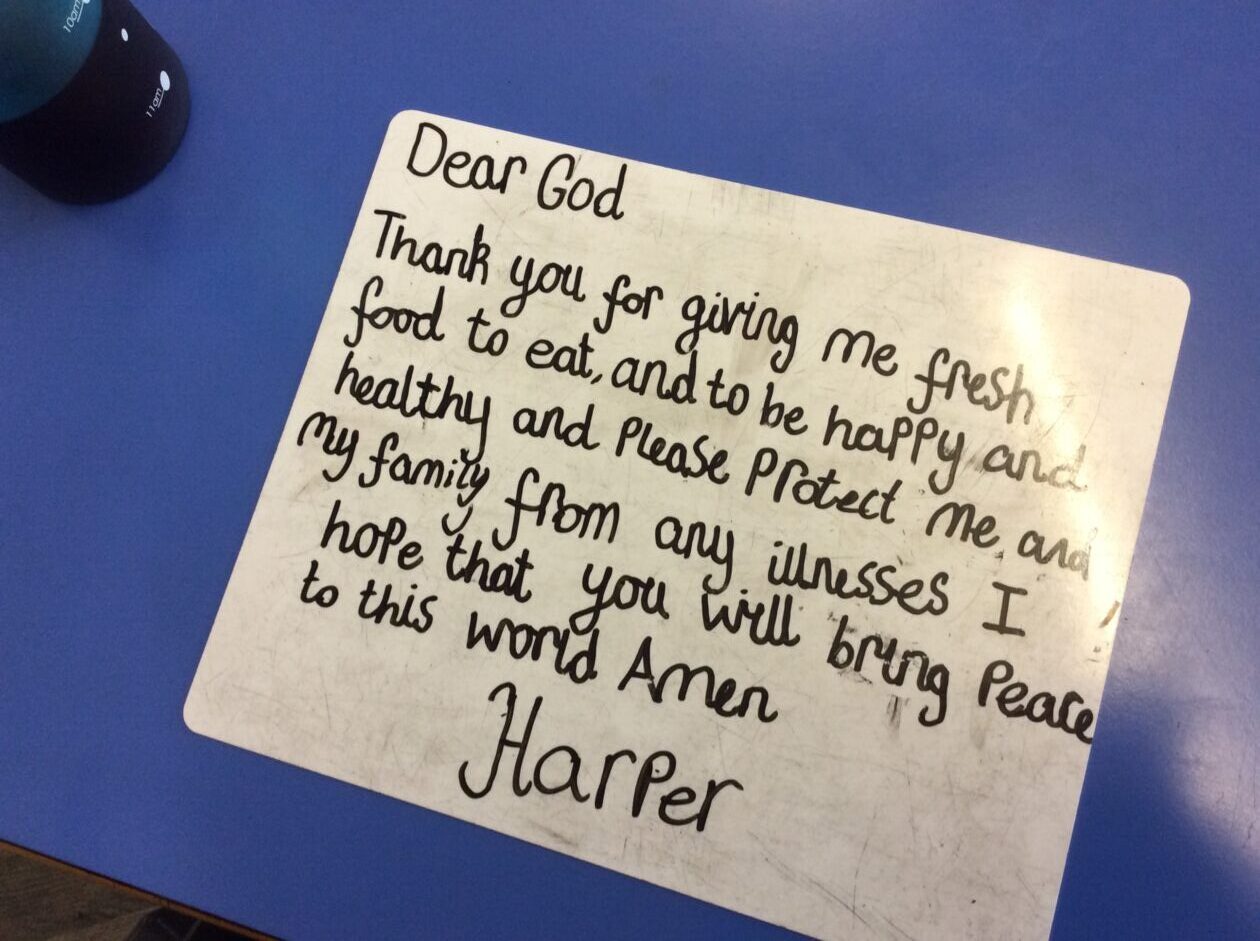 10am
11am
Dear God
Thank you for giving me fresh
food to eat, and to be happy and
healthy and Please Protect me and
my family from any illnesses I
hope that you will bring Peace
to this world Amen
Harper